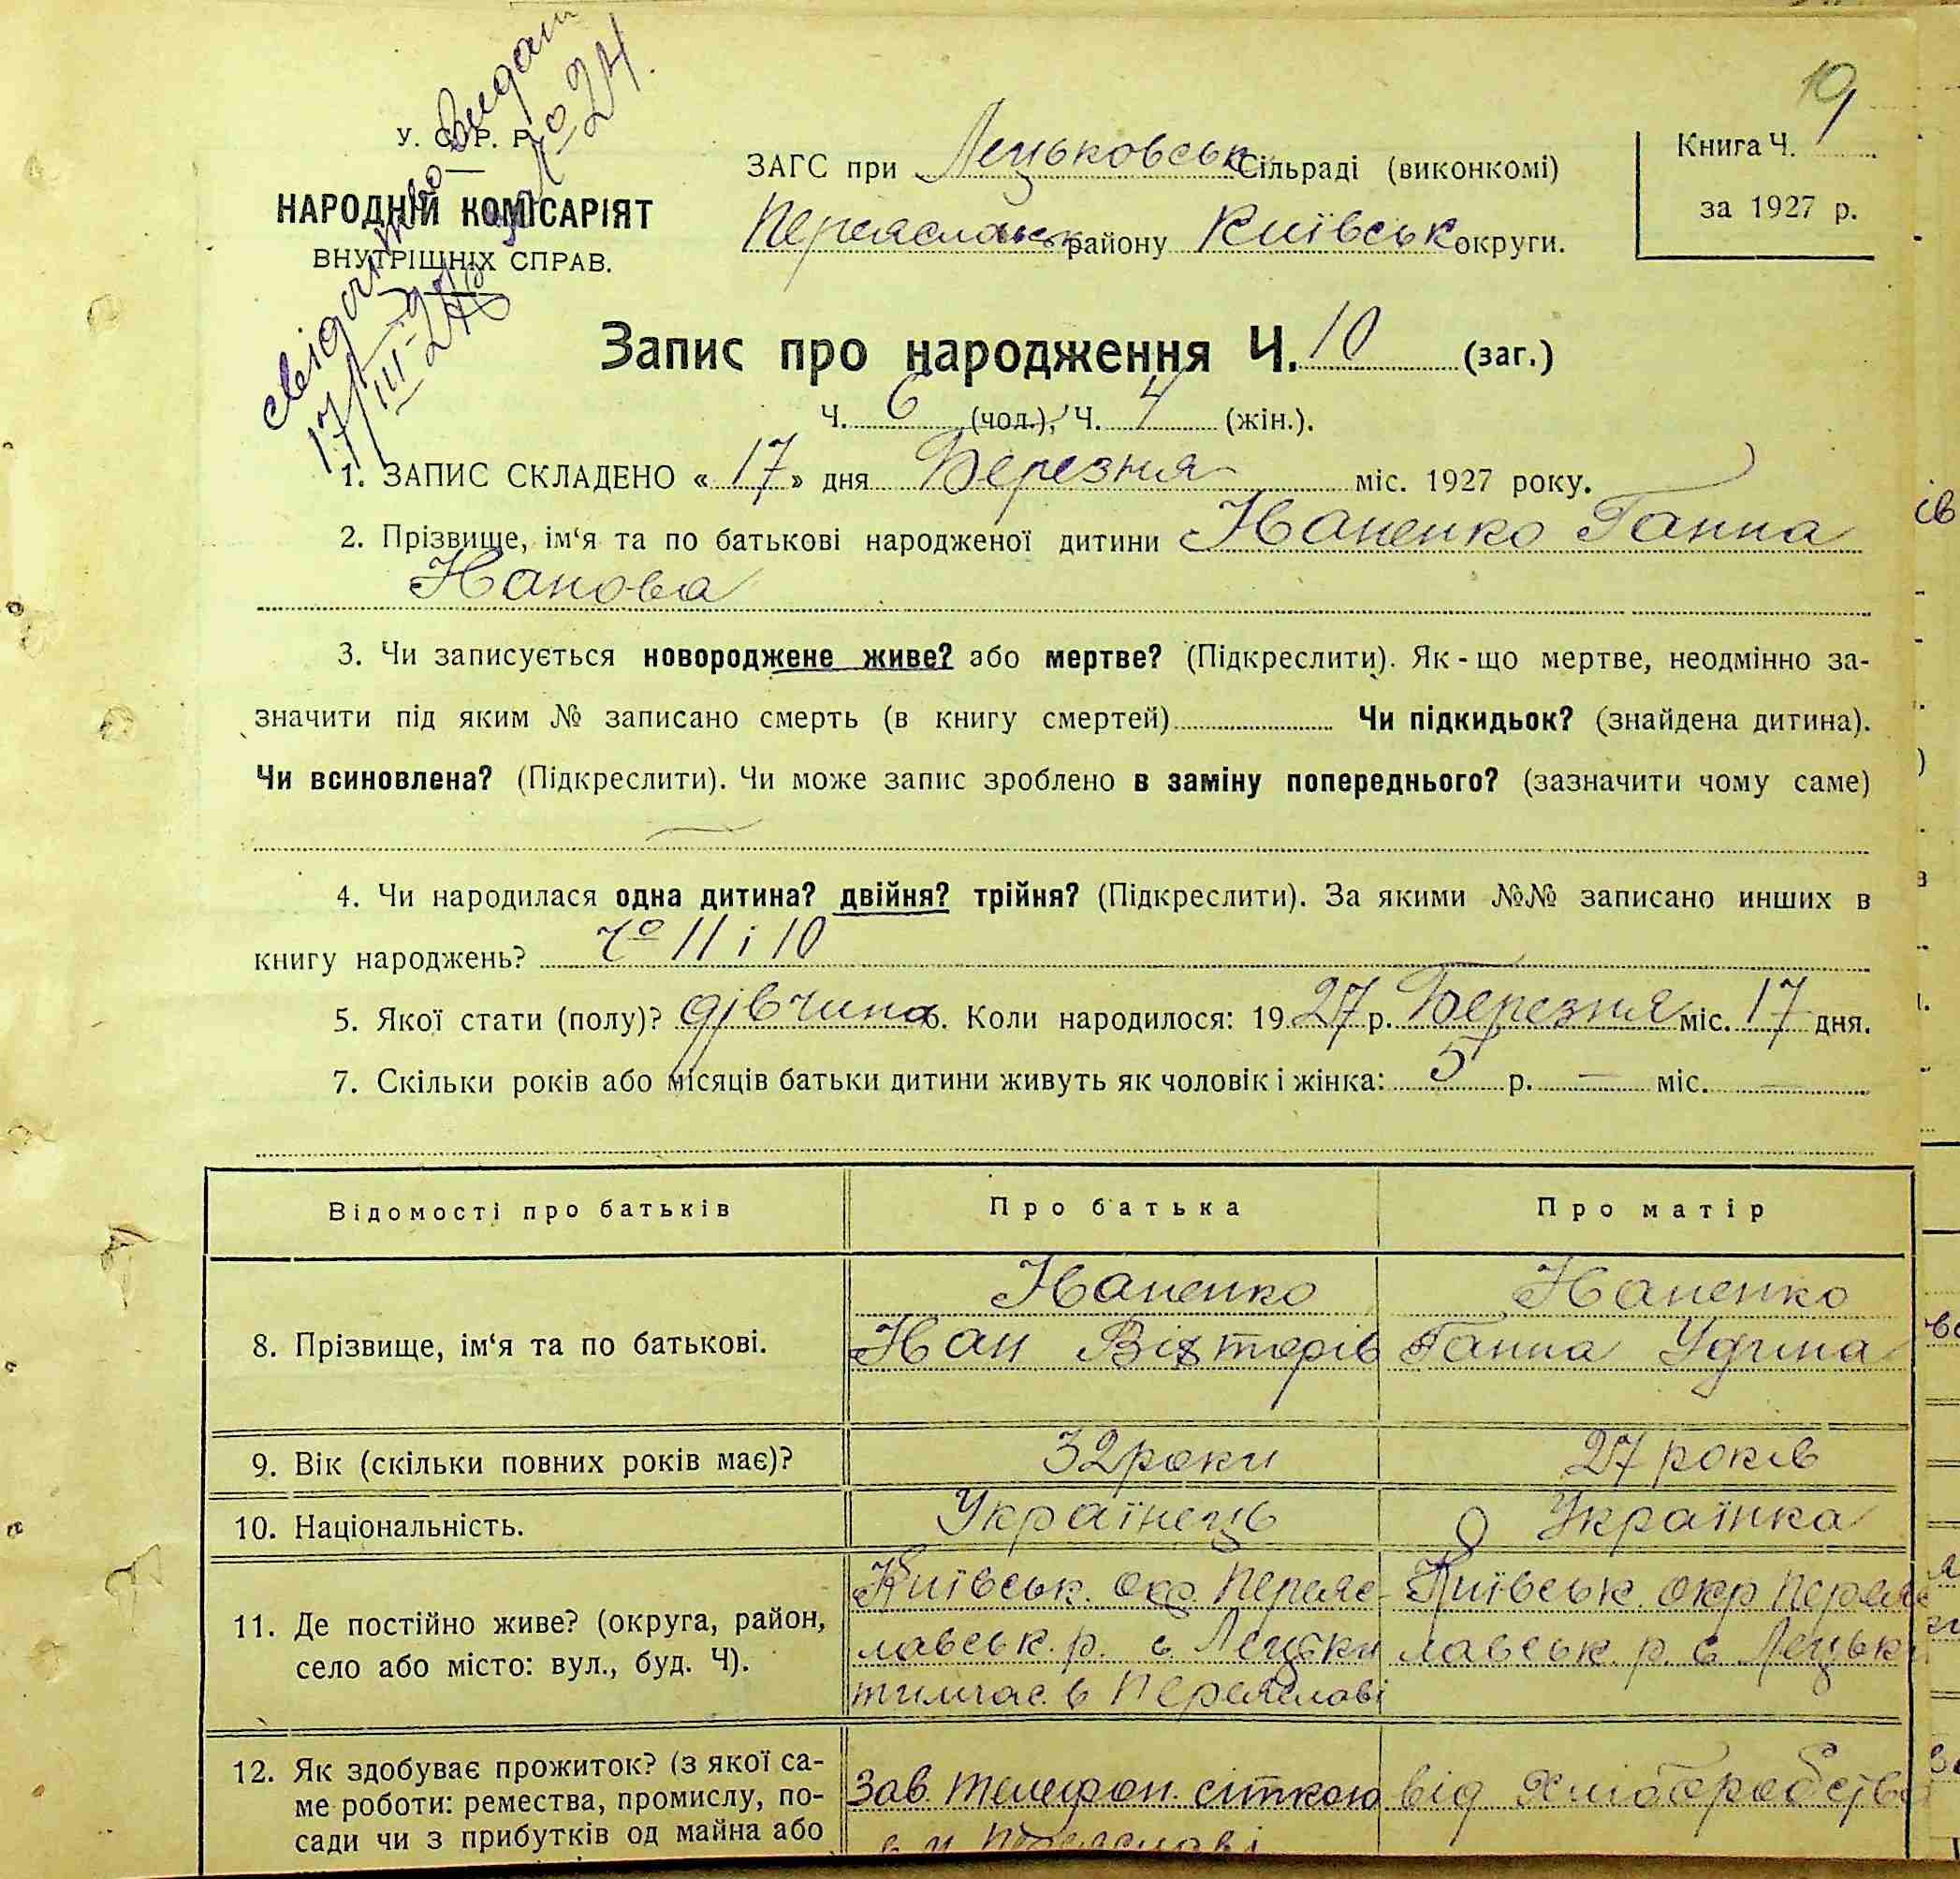 свідоцтво видано
за № 24
17/III-27 р.
10
У. С. Р. Р.
НАРОДНІЙ КОМІСАРІЯТ
ВНУТРІШНІХ СПРАВ.
ЗАГС при Лецьковськ Сільраді (виконкомі)
Переяславськ району Київськ округи.
Книга Ч. 1
за 1927 р.
Запис про народження Ч. 10 (заг.)
Ч. 6 (чол.), Ч. 4 (жін.).
1. ЗАПИС СКЛАДЕНО « 17 » дня Березня міс. 1927 року.
2. Прізвище, ім‘я та по батькові народженої дитини Наненко Ганна
3. Чи записується новороджене живе? або мертве? (Підкреслити). Як - що мертве, неодмінно за-
значити під яким № записано смерть (в книгу смертей) Чи підкидьок? (знайдена дитина).
Чи всиновлена? (Підкреслити). Чи може запис зроблено в заміну попереднього? (зазначити чому саме)
4. Чи народилася одна дитина? двійня? трійня? (Підкреслити). За якими №№ записано инших в
книгу народжень? 11 і 10
5. Якої стати (полу)? дівчина 6. Коли народилося: 1927 р. Березня міс. 17 дня.
7. Скільки років або місяців батьки дитини живуть як чоловік і жінка: 5 р. — міс. —
Відомості про батьків Про батька Про матір
Наненко Наненко
8. Прізвище, ім‘я та по батькові. Вікторів Ганна
9. Вік (скільки повних років має)? 32 роки 27 років
10. Національність. Українець Українка
11. Де постійно живе? (округа, район,
село або місто: вул., буд. Ч).
Київськ. окр. Переяс-
лавськ. р. с Лецьки
тимчас. в Переяславі
Київськ. окр Переяс
лавськ. р. с Лецьки
12. Як здобуває прожиток? (з якої са-
ме роботи: ремества, промислу, по-
сади чи з прибутків од майна або
Зав. телефон. сіткою
в м Переяславі
від Хліборобства